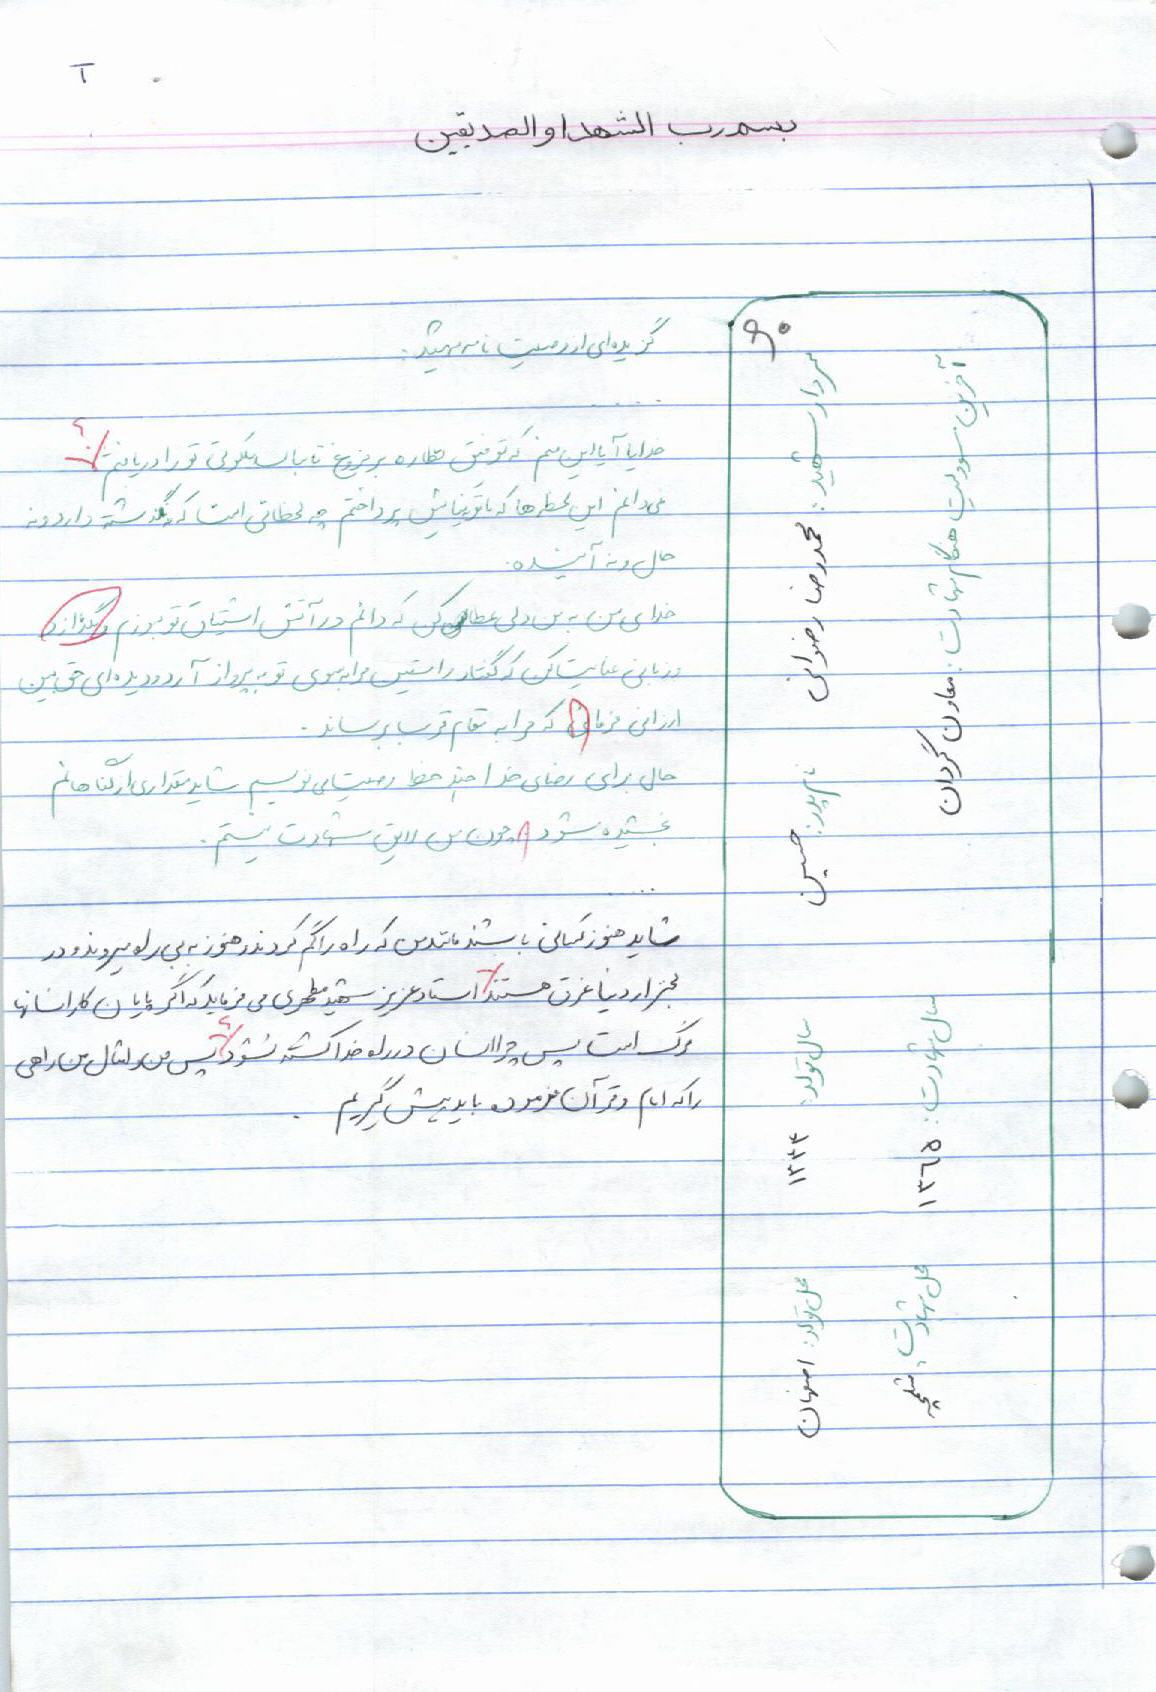 بسم رب الشهدا و الصدیقین
سردار شهید: محمدرضا رضوانی
نام پدر: حسین
سال تولد: ۱۳۴۴
محل تولد: اصفهان
آخرین مسوولیت هنگام شهادت: معاون گردان
سال شهادت: ۱۳۶۵
محل شهادت: شلمچه
گزیده‌ای از وصیت نامه شهید:
.....
خدایا آیا این منم که توفیق نظاره بر فروغ تابناک ملکوتی تو را دریافتم؟
می‌دانم این لحظه‌ها که با تو نیایش پرداختم چه لحظاتی است که نه گذشته دارد و نه
حال و نه آینده.
خدای من به من دلی عطا کن که دائم در آتش اشتیاق تو بسوزم و بگدازد
و زبانی عنایت کن که گفتار راستین مرا بسوی تو به پرواز آرد و دیده‌ای حق بین
ارزانی فرمائی که مرا به مقام قرب برساند.
حال برای رضای خدا چند خط وصیت می نویسم شاید مقداری از گناهانم
بخشیده شود چون من لایق شهادت نیستم.
.....
شاید هنوز کسانی باشند مانند من که راه را گم کردند و هنوز به بی راه میروند و در
لجنزار دنیا غرق هستند استاد عزیز شهید مطهری می فرماید که اگر پایان کار انسانها
مرگ است پس چرا انسان در راه خدا کشته نشود؟ پس من و امثال من راهی
را که امام و قرآن فرمود باید پیش گیریم.